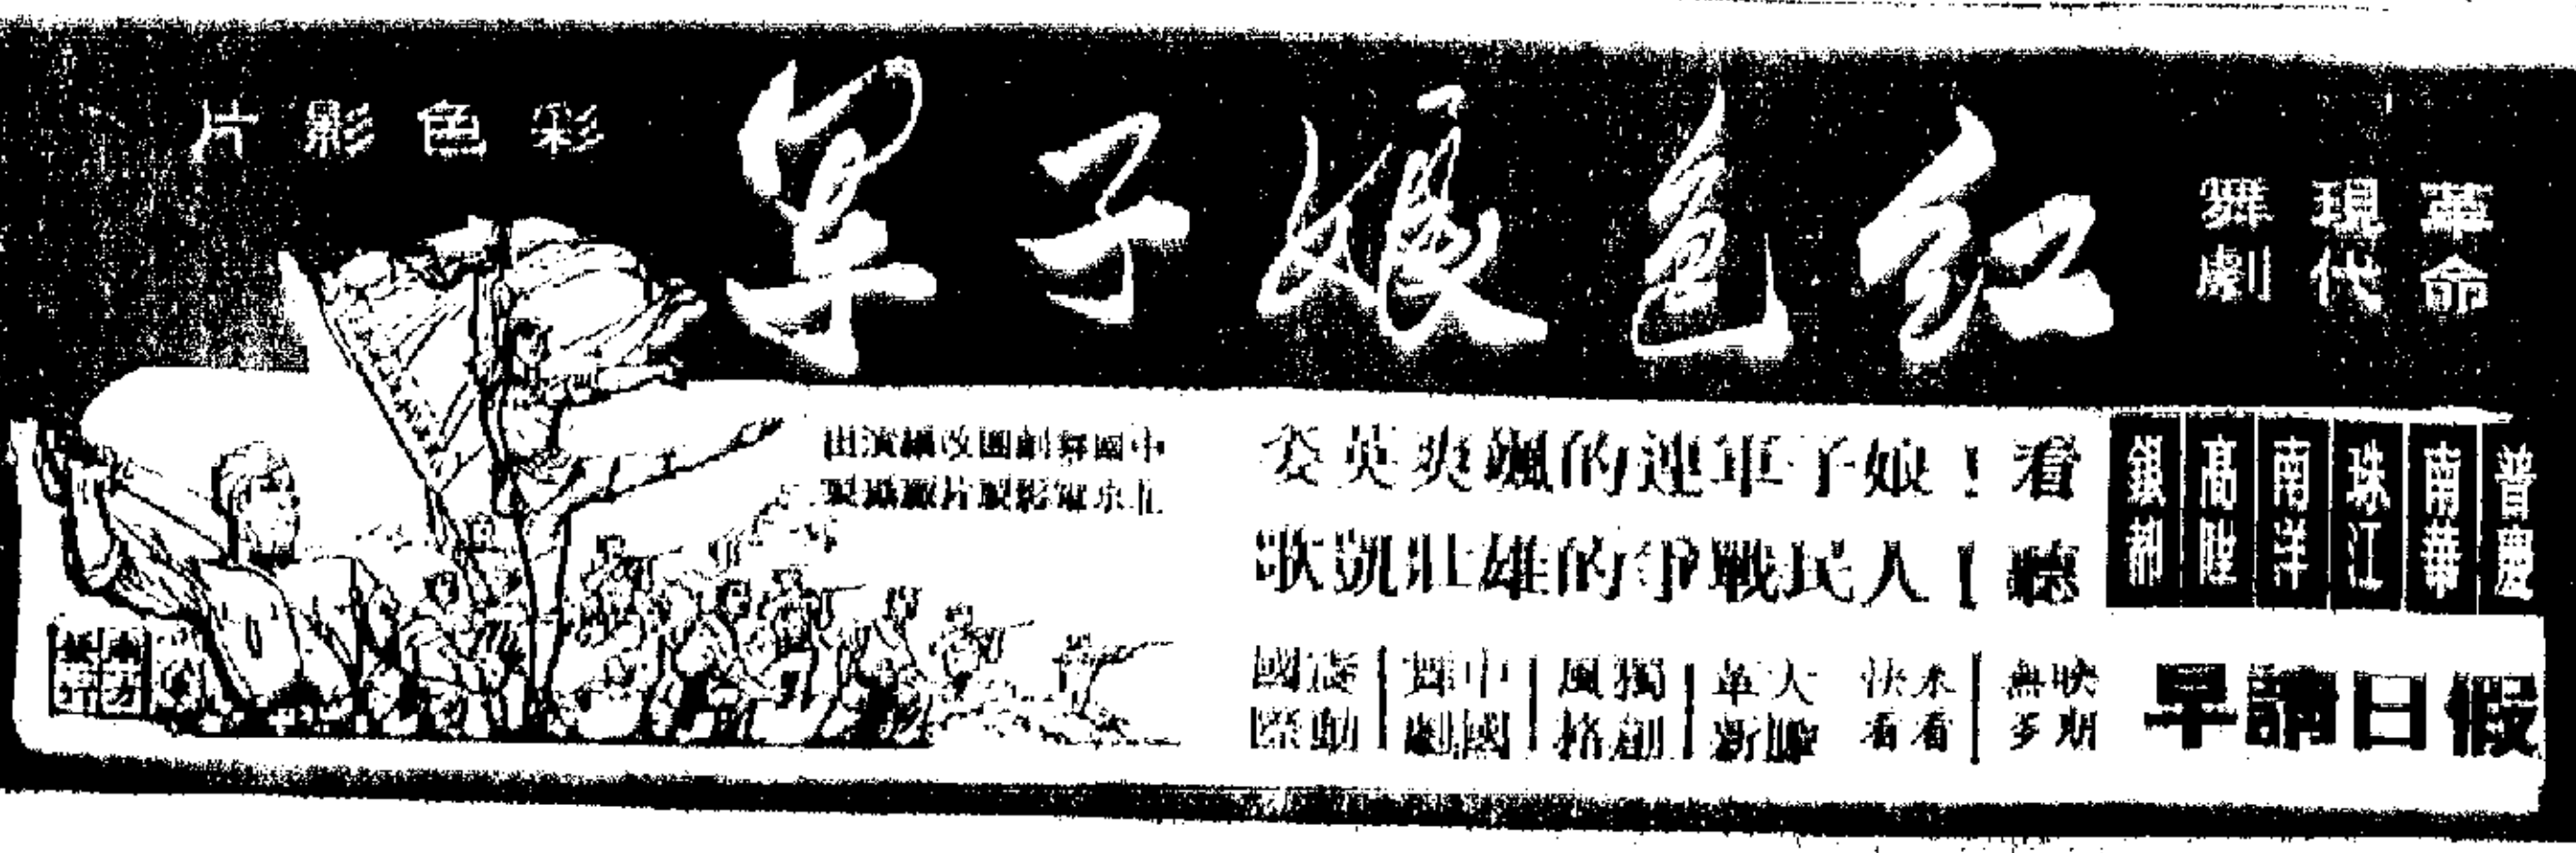 革命
現代
舞劇
红色娘子军
彩色影片
普慶
南華
珠江
南洋
高陞
銀都
看！娘子軍連的颯爽英姿
聽！人民戰爭的雄壯凱歌
中國舞劇團改編演出
北京電影製片廠攝製
假日請早
映期無多
未看快看
大膽革新
獨創風格
中國舞劇
轟動國際
南方發行